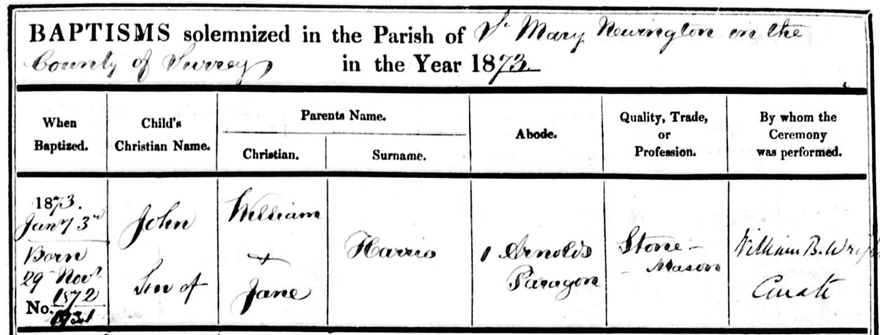 BAPTISMS solemnized in the Parish of St Mary Newington in the
County of Surrey in the Year 1873.
When Baptized.
Child's Christian Name.
Parents Name.
Christian.
Surname.
Abode.
Quality, Trade, or Profession.
By whom the Ceremony was performed.
1873.
Jany 3rd
Born
29 Novr
1872
No. 1931
John
Son of
William
+
Jane
Harris
1 Arnolds
Paragon
Stone-
Mason
William B.
Curate